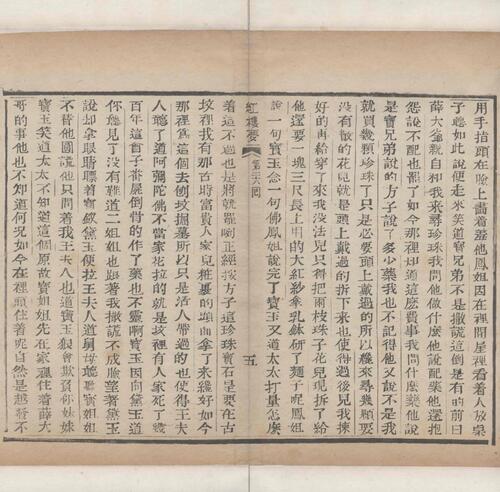 用手指頭在臉上畫着羞他鳳姐因在裡間屋裡看着人放桌
子聽如此說便走来笑道寳兄弟不是撒謊這倒是有的前日
薛大爺親自和我来尋珍珠我問他做什麽他說配藥他還抱
怨說不配也罷了如今那裡知道這麽費事我問什麽藥他說
是寳兄弟說的方子說了多少藥我也不記得他又說不是我
就買幾顆珍珠了只是必要頭上戴過的所以纔来尋幾顆要
没有散的花兒就是頭上戴過的拆下来也使得過後兒我揀
好的再給穿了来我没法兒只得把兩枝珠子花兒現拆了給
他還要一塊三尺長上用的大紅紗拿乳鉢研了麵子呢鳳姐
說一句寳玉念一句佛鳳姐說完了寳玉又道太太打量怎麽
紅樓夢 第二十八回 五
着這不過也是將就罷喇正經按方子這珍珠寳石是要在古
坟裡我有那古時富貴人家兒粧裹的頭面拿了来纔好如今
那裡爲這個去刨坟掘墓所以只是活人帶過的也使得王夫
人聽了道阿彌陀佛不當家花拉的就是坟裡有人家死了幾
百年這會子番屍倒骨的作了藥也不靈啊寳玉因向黛玉道
你聽見了没有難道二姐姐也跟着我撒謊不成臉望着黛玉
說却拿眼睛瞟着寳釵黛玉便拉王夫人道舅母聽聽寳姐姐
不替他圓謊他只問着我王夫人也道寳玉狠會欺負你妹妹
寳玉笑道太太不知道這個原故寳姐姐先在家裡住着薛大
哥的事他也不知道何况如今在裡頭住着呢自然是越發不